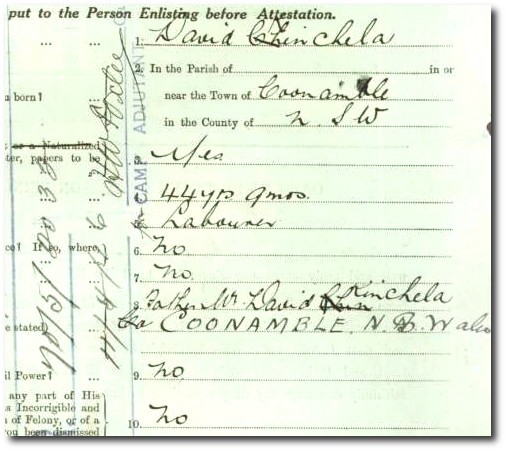 put to the Person Enlisting before Attestation.
... ... 1. David Kinchela
2. In the Parish of in or
a born? near the Town of Coonamble
... in the County of N. S W
s or a Naturalized
ter, papers to be 3. Yes
...
... 4. 44 yrs 9 mos.
... 5. Labourer
... 6. No
ce? If so, where,
... 7. No.
8. Father Mr David Kinchela
re stated) COONAMBLE. N. S. Wales
...
9. No.
il Power? ...
any part of His
s Incorrigible and
n of Felony, or of a
you been dismissed 10. No
CAMP ADJUTANT